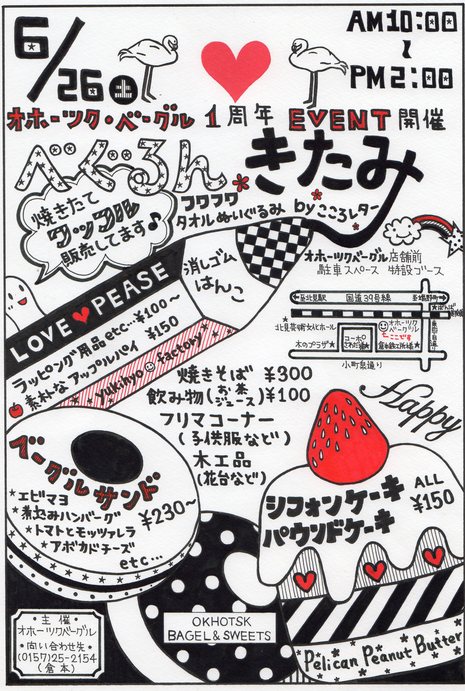 6/26 土
AM10:00
～
PM2:00
オホーツク・ベーグル 1周年 EVENT 開催
べぐるん きたみ
焼きたて
ワッフル
販売してます♪
フワフワ
タオルぬいぐるみ by こころレター
消しゴム
はんこ
オホーツクベーグル店舗前
駐車スペース 特設ブース
LOVE♥PEASE
ラッピング用品etc ¥100～
素朴なアップルパイ ¥150
yukinyo factory
至北見駅 国道39号線
北見芸術文化ホール
木のプラザ★
オホーツク
ベーグル
ここです
小町泉通り
焼きそば ¥300
飲み物(お茶 ジュース)¥100
フリマコーナー
(子供服など)
木工品
(花台など)
Happy
ベーグルサンド
★エビマヨ
★煮込みハンバーグ
★トマトとモッツァレラ
★アボカドチーズ
etc...
¥230～
シフォンケーキ
パウンドケーキ
ALL
¥150
OKHOTSK
BAGEL & SWEETS
Pelican Peanut Butter
主催
オホーツクベーグル
・問い合わせ先・
(0157)25-2154
(倉本)